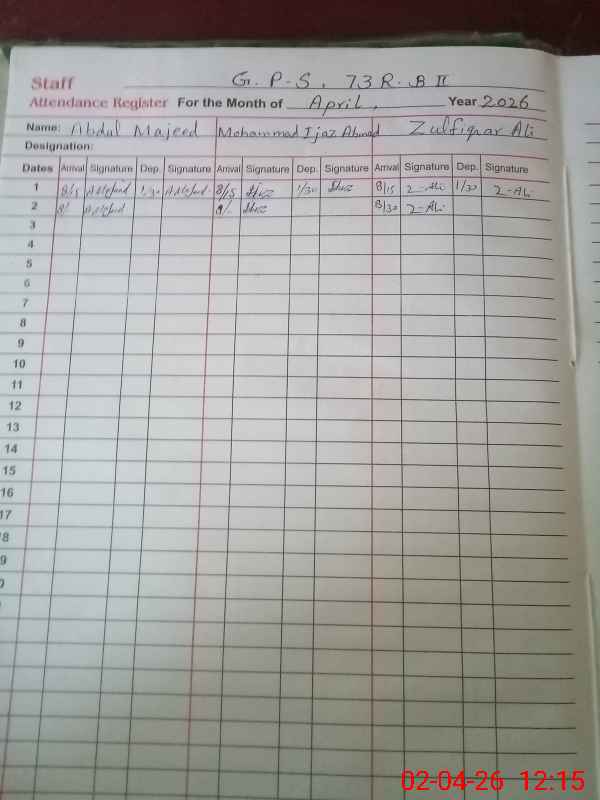 Staff G.P.S. 73 R.B II
Attendance Register For the Month of April, Year 2026
Name: Abdul Majeed Mohammad Ijaz Ahmad Zulfiqar Ali
Designation:
Dates Arrival Signature Dep. Signature Arrival Signature Dep. Signature Arrival Signature Dep. Signature
1 8/15 A.Majeed 1/30 A.Majeed 8/15 1/30 8/15 Z-Ali 1/30 Z-Ali
2 8/- A.Majeed 8/30 Z-Ali
3
4
5
6
7
8
9
10
11
12
13
14
15
16
17
8
9
02-04-26 12:15